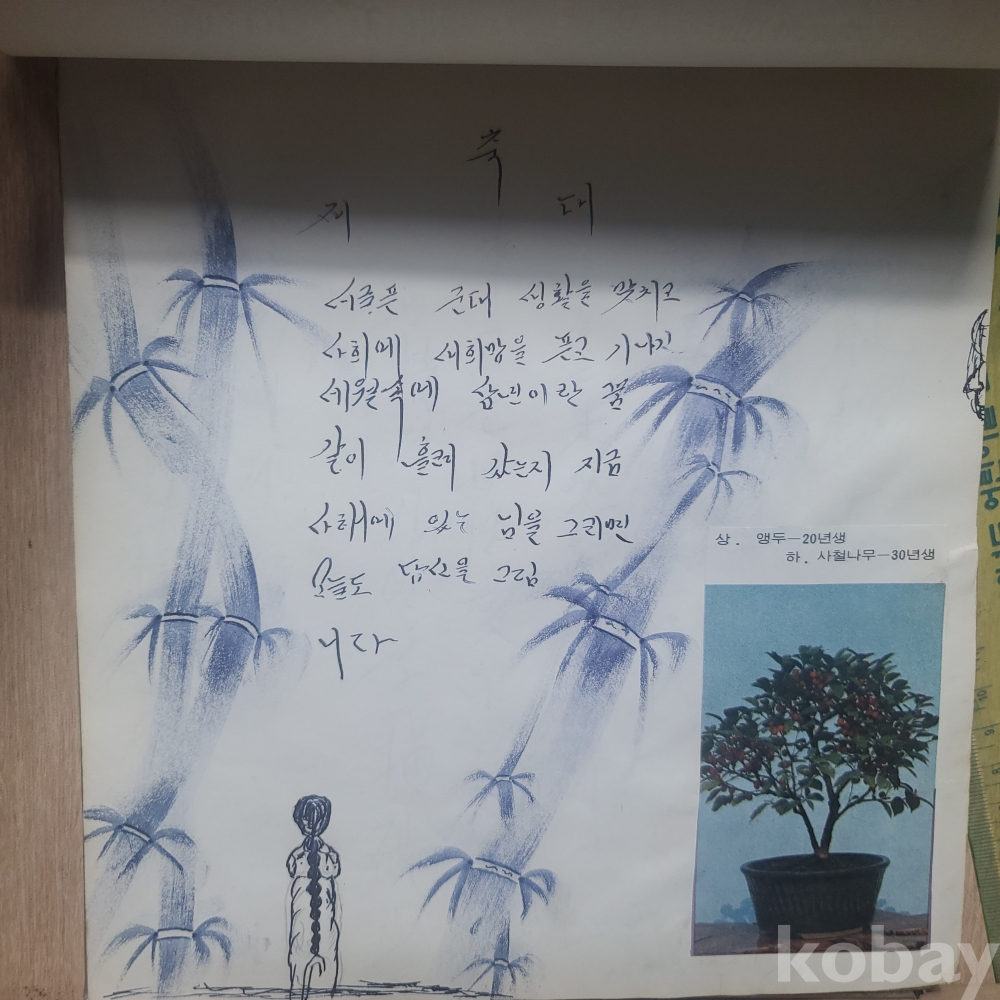 축
제 대
서글픈 군대 생활을 맞치고
사회에 서희망을 픈고 지나진
세월속에 삼년이란 꿈
같이 흘러 갔는지 지금
사회에 있는 님을 그리면
오늘도 당신을 그림
니다
상. 앵두—20년생
하. 사철나무—30년생
kobay